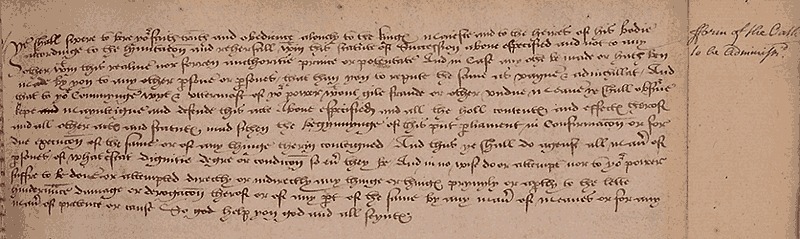 Ye shall swere to bere yor faith trouth and obedience alonely to the kings maiestie and to the heires of his bodie
accordinge to the lymytacon and rehersall within this statute of Succession above especified and not to any
other within this realme nor forren auctoritie prince or potentate And in Case any othe be made or hath ben
made by you to any other psone or psones that than you to repute the same as vayne & adnichillat And
that to yor Connynge wytt & uttermost of yor power wout gile fraude or other undue meanes ye shall observe
kepe maynteigne and defende this acte above especified and all the holl contents and effects therof
and all other acts and statuts made sithen the begynnynge of this pnt pliament in Confirmacon or for
due execucon of the same or of any thinge therin conteigned And thus ye shall do agenst all manr of
psones of what estat dignitie degre or condicon so evr they be And in no wise do or attempt nor to yor power
suffre to be done or attempted directly or indirectly any thinge or things pryvyly or aptly to the lette
hinderance damage or derogacon therof or of any pt of the same by any manr of meanes or for any
manr of pretence or cause So god helpe you god and all seynts
fforme of the Oath
to be administred